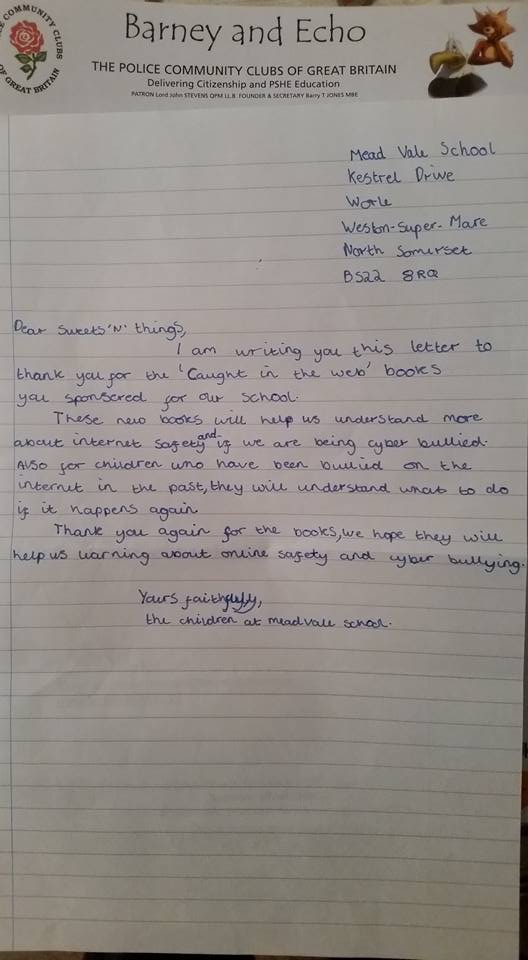 COMMUNITY CLUBS
OF GREAT BRITAIN
Barney and Echo
THE POLICE COMMUNITY CLUBS OF GREAT BRITAIN
Delivering Citizenship and PSHE Education
PATRON Lord John STEVENS QPM LL.B FOUNDER & SECRETARY Barry T JONES MBE
Mead Vale School
Kestrel Drive
Worle
Weston-Super-Mare
North Somerset
BS22 8RQ
Dear Sweets 'N' things,
I am writing you this letter to
thank you for the 'Caught in the web' books
you sponsered for our school.
These new books will help us understand more
about internet safety and if we are being cyber bullied.
Also for children who have been bullied on the
internet in the past, they will understand what to do
if it happens again
Thank you again for the books, we hope they will
help us learning about online safety and cyber bullying.
Yours faithfully,
the children at mead vale school.